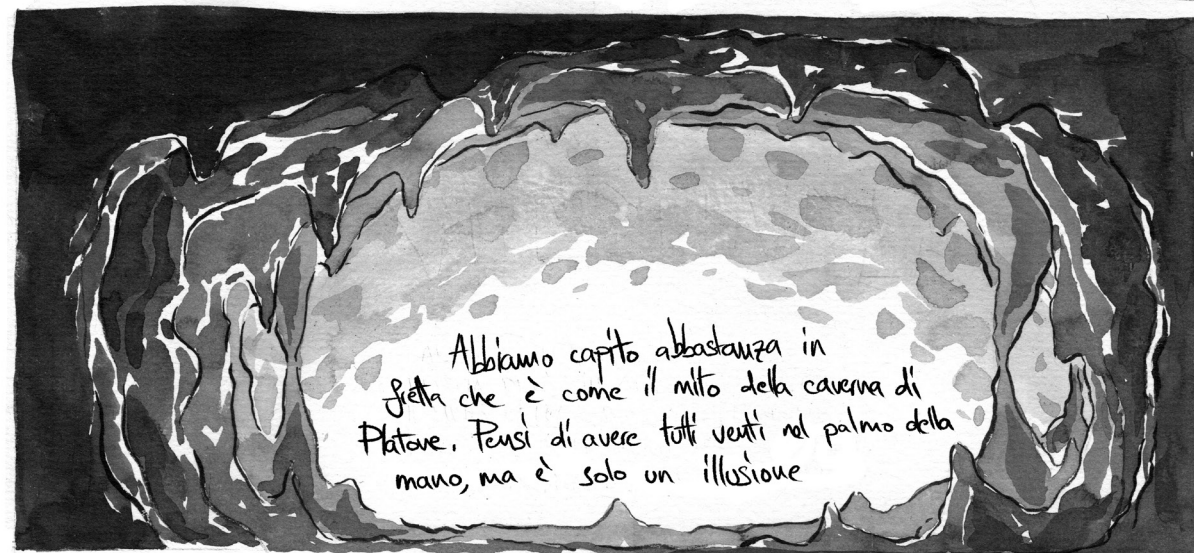 Abbiamo capito abbastanza in
fretta che è come il mito della caverna di
Platone. Pensi di avere tutti venti nel palmo della
mano, ma è solo un illusione